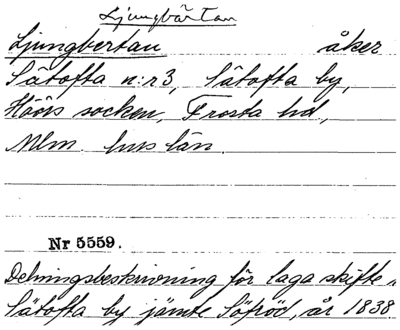 Ljungbärtan
Ljungbertan åker
Sätofta n:r 3, Sätofta by,
Höörs socken, Frosta hd,
Mlm. hus län.
Nr 5559.
Delningsbeskrivning för laga skifte
Sätofta by jämte Söfröd, år 1838